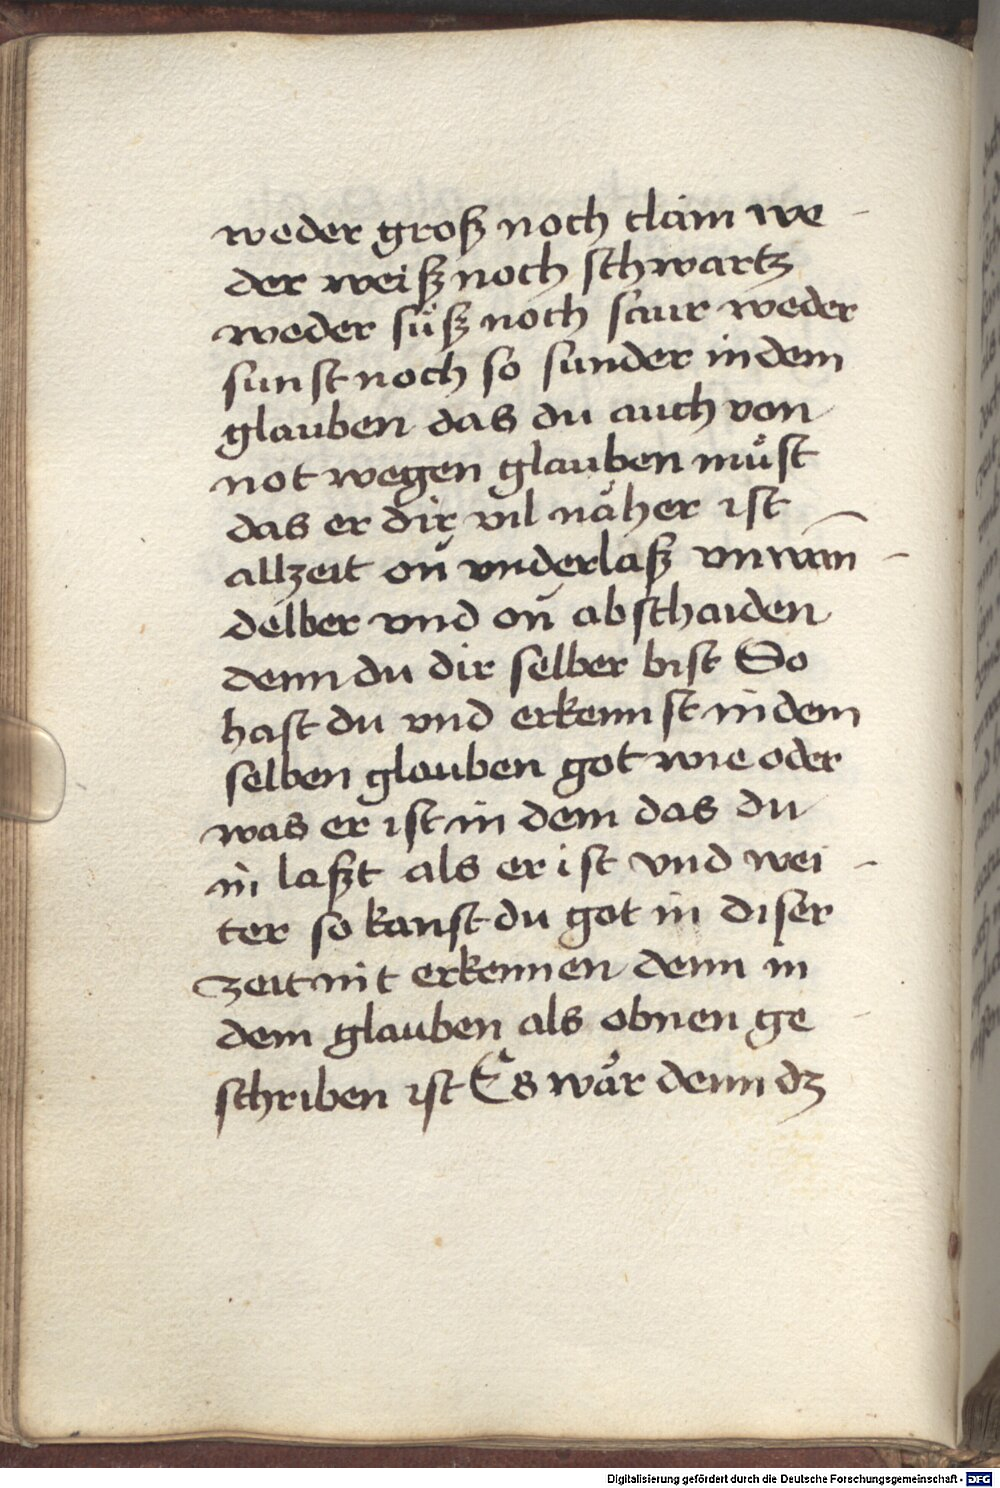 weder groß noch clain we-
der weiß noch schwartz
weder süß noch saur weder
sunst noch so sunder in dem
glauben das du auch von
not wegen glauben müst
das er dir vil näher ist
allzeit on underlaß vnwan-
delber vnd on abschaiden
denn du dir selber bist So
hast du vnd erkennst in dem
selben glauben got wie oder
was er ist in dem das du
in laßt als er ist vnd wei-
ter so kanst du got in diser
zeit nit erkennen denn in
dem glauben als obnen ge-
schriben ist Es wär denn dz
Digitalisierung gefördert durch die Deutsche Forschungsgemeinschaft - DFG